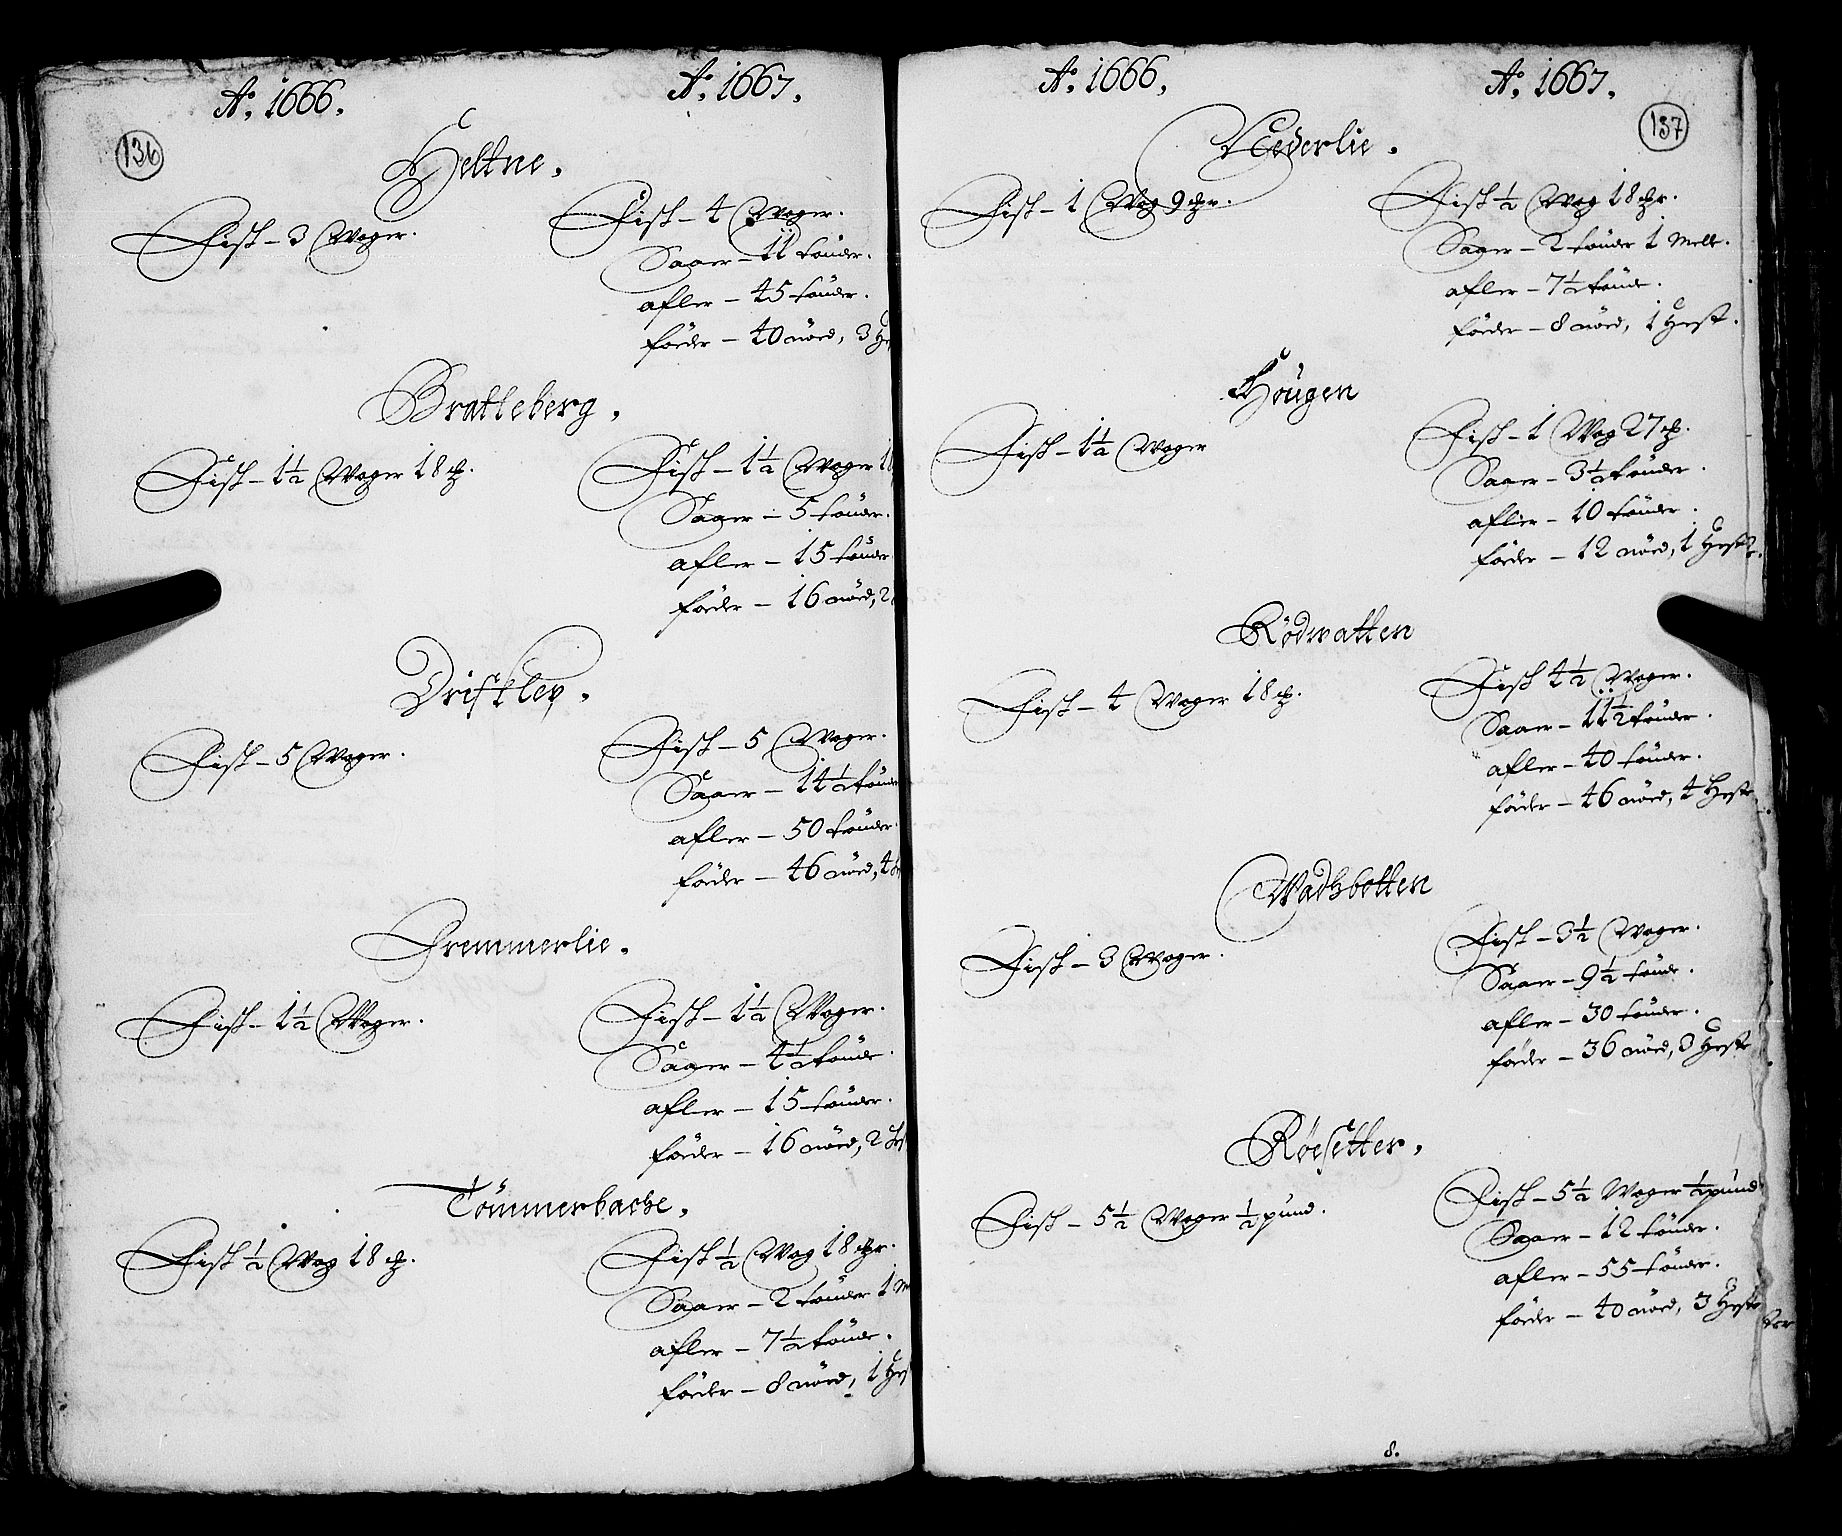 Ao. 1666.
Ao. 1667.
136
Heltne.
Fisk - 3 Woger.
Fisk - 4 Woger.
Saaer - 11 tönder.
afler - 45 tönder.
föder - 40 nöed, 3
Bratteberg.
Fisk - 1½ Woger 18 ℔.
Fisk - 1½ Woger 18
Saaer - 5 tönder.
afler - 15 tönder
föder - 16 nöed, 2
Driftley.
Fisk - 5 Woger.
Fisk - 5 Woger.
Saaer - 14½ tönder
afler - 50 tönder.
föder - 46 nöed, 4
Fremmerlie.
Fisk - 1½ Woger.
Fisk - 1½ Woger.
Saaer - 4½ tönde.
afler - 15 tönder.
föder - 16 nöed, 2
Tömmerbacke.
Fisk ½ Wog 18 ℔.
Fisk ½ Wog 18 ℔r.
Saaer - 2 tönder 1
afler - 7½ tönde.
föder - 8 nöed, 1
Ao. 1666.
Ao. 1667.
137
Nederlie.
Fisk - 1 Wog 9 ℔r.
Fisk ½ Wog 18 ℔r.
Saaer - 2 tönder 1 Mele.
afler - 7½ tönde.
föder - 8 nöed, 1 Hest.
Hougen
Fisk - 1½ Woger
Fisk - 1 Wog 27 ℔.
Saaer - 3½ tönder.
afler - 10 tönder.
föder - 12 nöed, 1 Hest.
Rödwatten
Fisk - 4 Woger 18 ℔.
Fisk 4½ Woger.
Saaer - 11½ tönder.
afler - 40 tönder.
föder - 46 nöed, 4 Heste.
Wadhbotten
Fisk - 3 Woger.
Fisk - 3½ Woger.
Saaer - 9½ tönde.
afler - 30 tönder.
föder - 36 nöed, 3 Heste
Röesetter.
Fisk - 5½ Woger ½ pund.
Fisk - 5½ Woger ½ pund
Saaer - 12 tönder.
afler - 55 tönder.
föder - 40 nöed, 3 Heste
8.